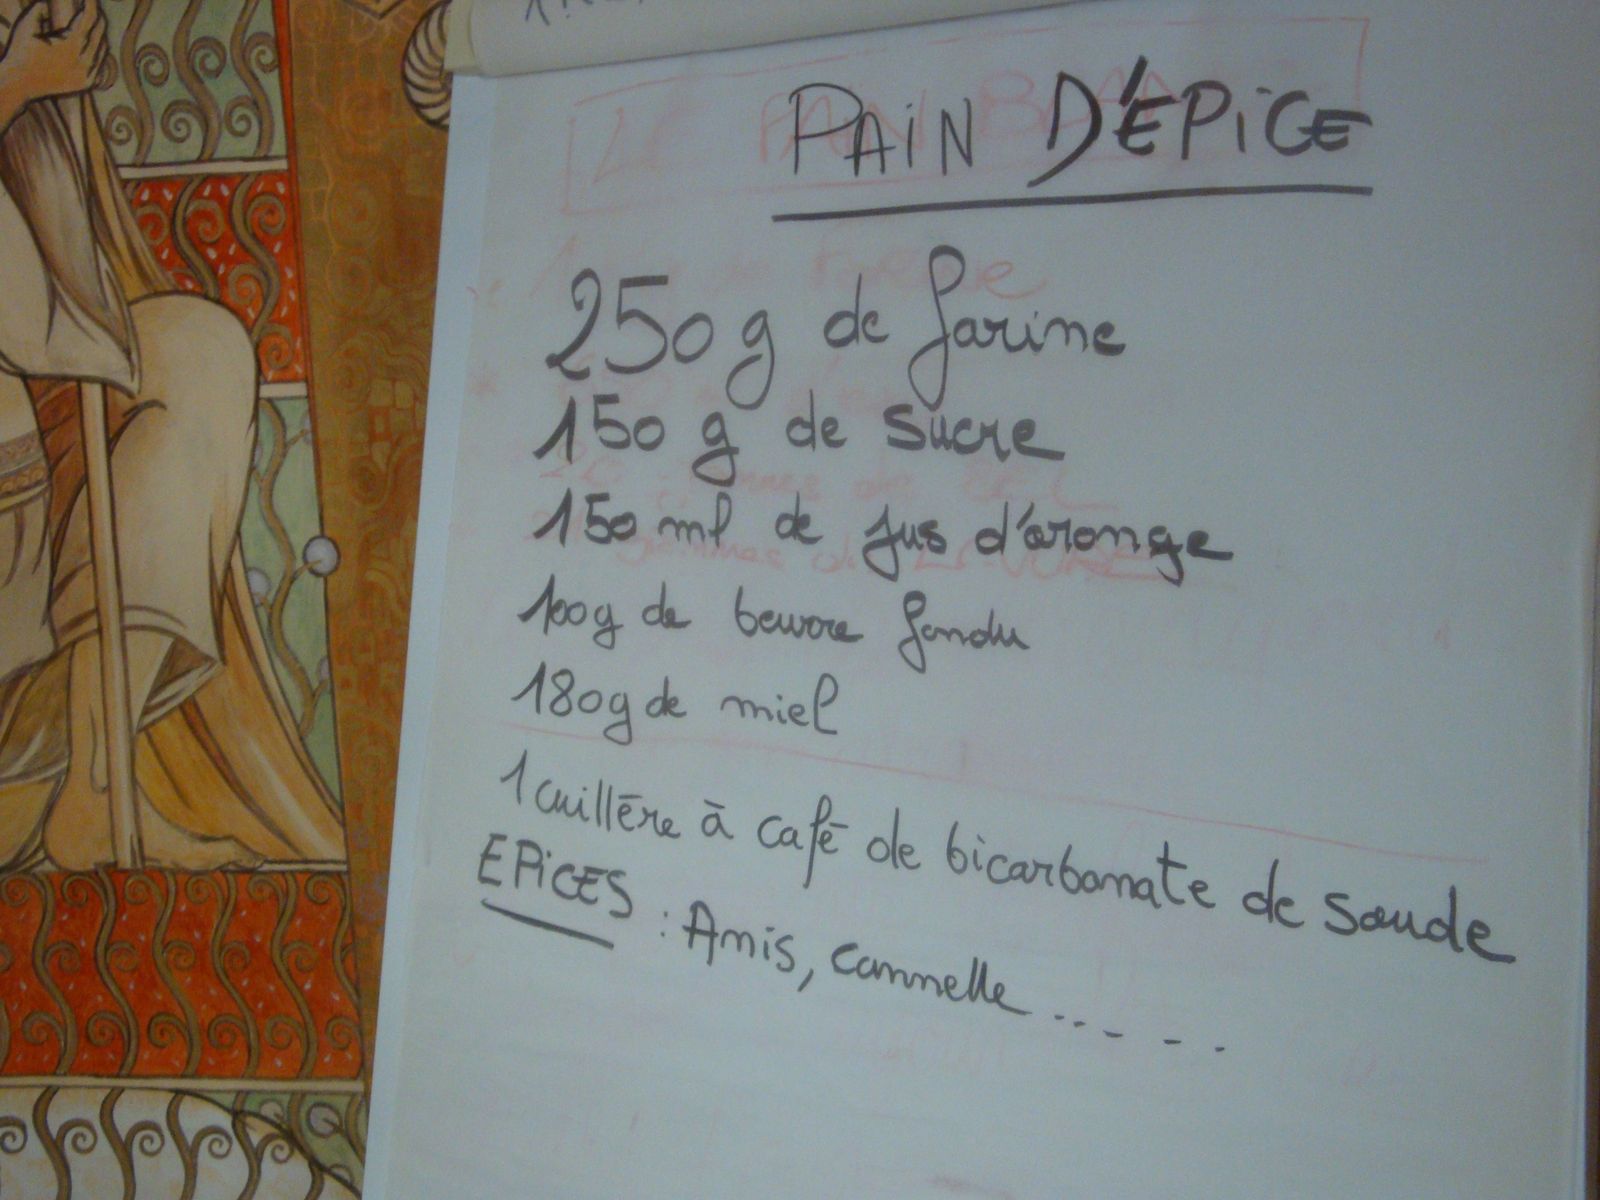 PAIN D'ÉPICE
250 g de farine
150 g de sucre
150 ml de jus d'orange
100g de beurre fondu
180g de miel
1 cuillère à café de bicarbonate de soude
EPICES : Anis, cannelle .......